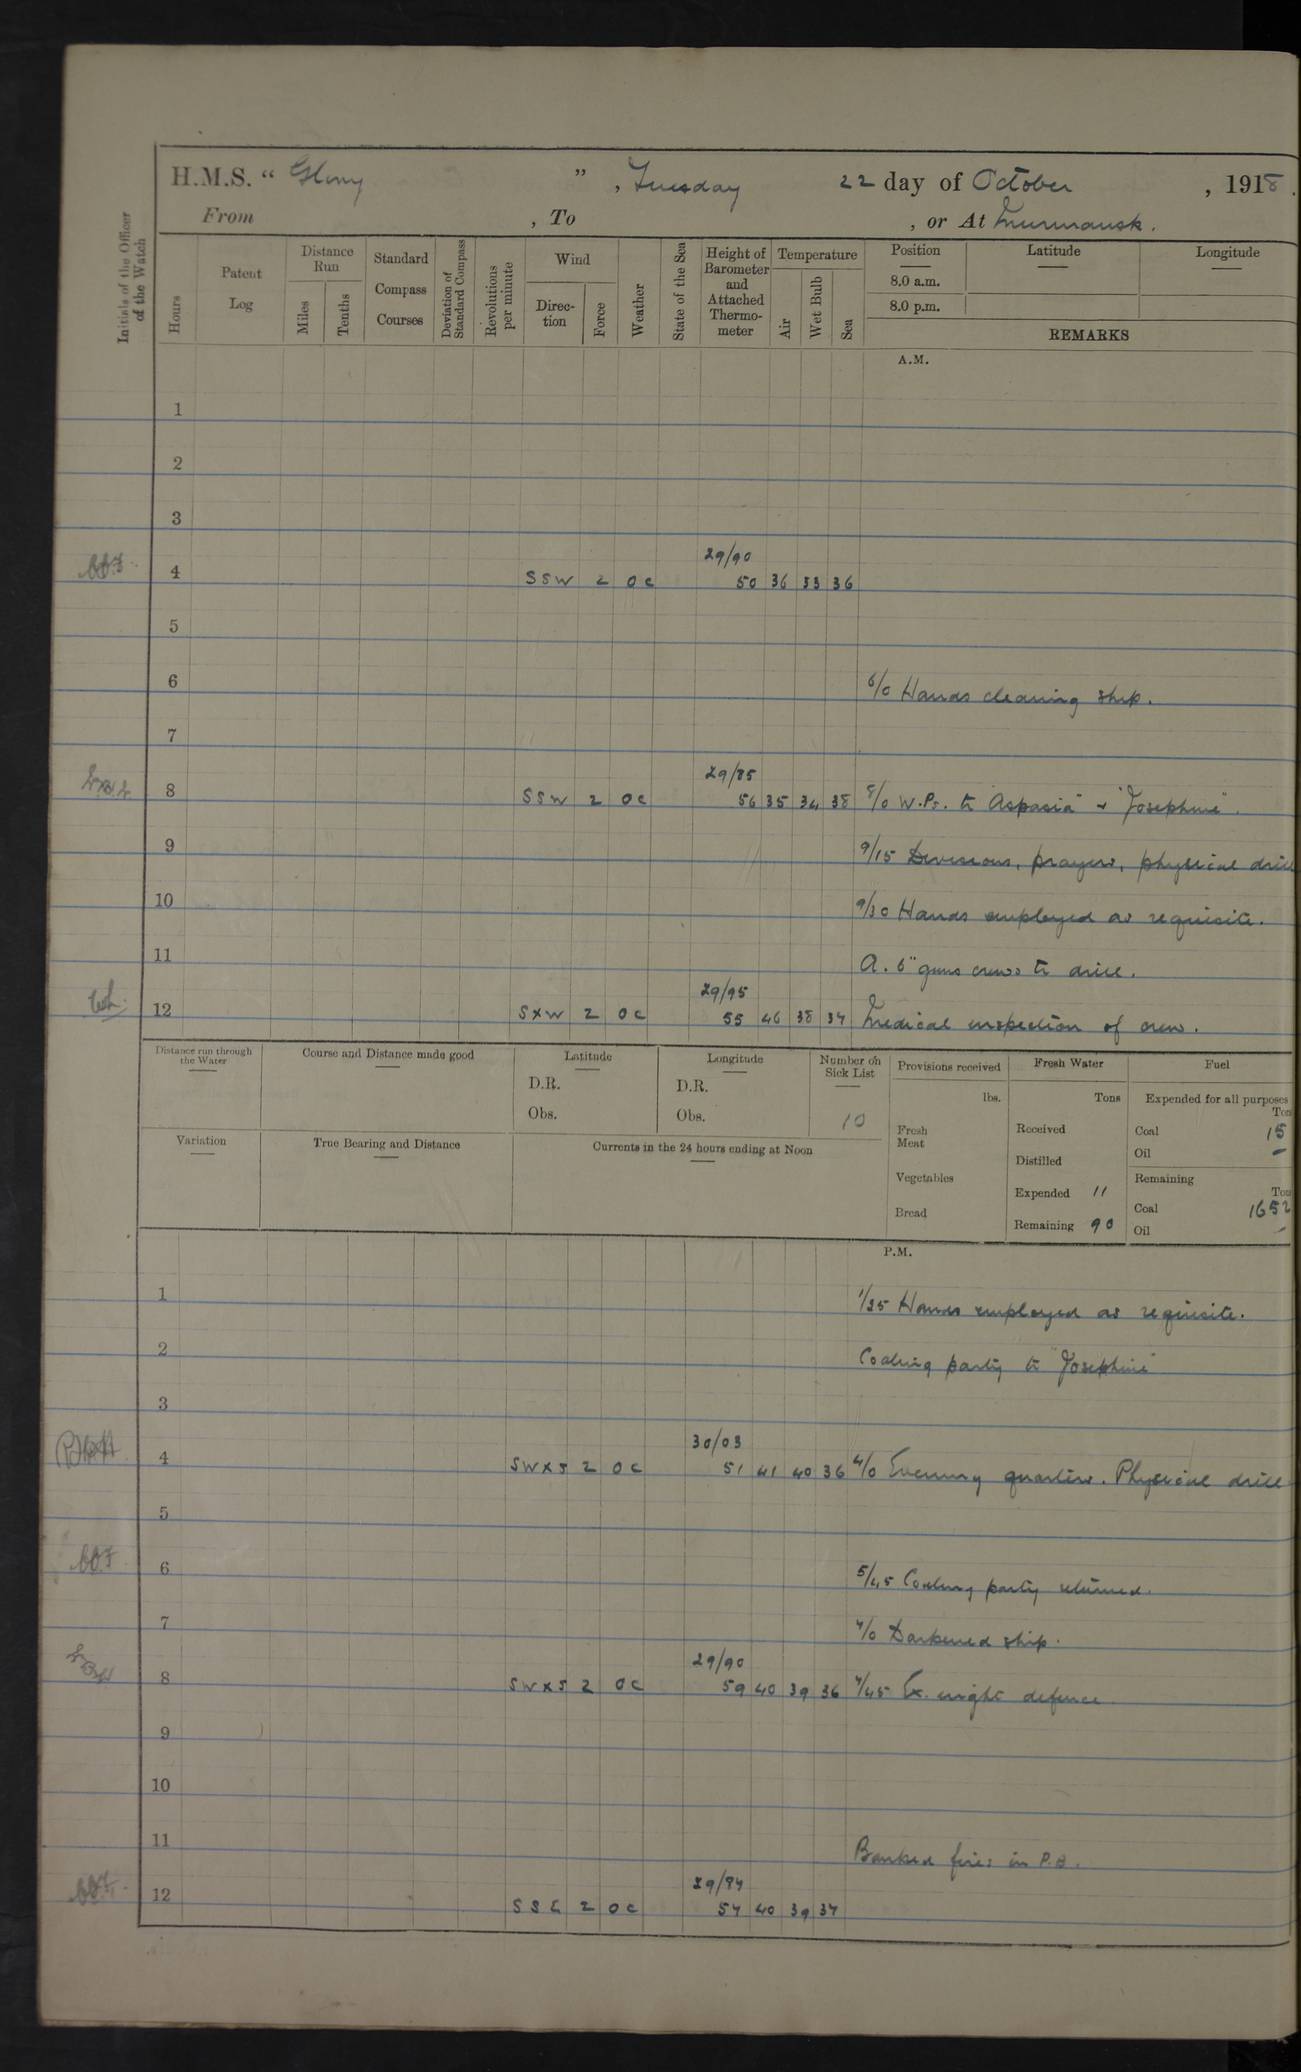 H.M.S. “ Glory ” , Tuesday 22 day of October , 1918.
From , To , or At Murmansk.
Initials of the Officer of the Watch
Hours
Patent Log
Distance Run
Miles
Tenths
Standard Compass Courses
Deviation of Standard Compass
Revolutions per minute
Wind
Direc- tion
Force
Weather
State of the Sea
Height of Barometer and Attached Thermo- meter
Temperature
Air
Wet Bulb
Sea
Position Latitude Longitude
8.0 a.m.
8.0 p.m.
REMARKS
A.M.
1
2
3
29/90
4 SSW 2 oc 50 36 33 36
5
6 6/0 Hands cleaning ship.
7
29/85
8 SSW 2 oc 56 35 34 38 8/0 W.Ps. to "Aspasia" & "Josephine".
9 9/15 Divisions, prayers, physical drill
10 9/30 Hands employed as requisite.
11 A. 6" guns crews to drill.
29/95
12 SXW 2 oc 55 46 38 37 Medical inspection of crew.
Distance run through the Water
Course and Distance made good
Latitude
D.R.
Obs.
Longitude
D.R.
Obs.
Number on Sick List
10
Variation
True Bearing and Distance
Currents in the 24 hours ending at Noon
Provisions received
lbs.
Fresh Meat
Vegetables
Bread
Fresh Water
Tons
Received
Distilled
Expended 11
Remaining 90
Fuel
Expended for all purposes
Ton
Coal 15
Oil –
Remaining
Ton
Coal 1652
Oil –
P.M.
1 1/25 Hands employed as requisite.
2 Coaling party to "Josephine"
3
30/03
4 SWXS 2 oc 51 41 40 36 4/0 Evening quarters. Physical drill
5
6 5/45 Coaling party returned.
7 7/0 Darkened ship.
29/90
8 SWXS 2 oc 59 40 39 36 7/45 Ex. night defence
9
10
11 Banked fires in P.B.
29/84
12 SSE 2 oc 57 40 39 37